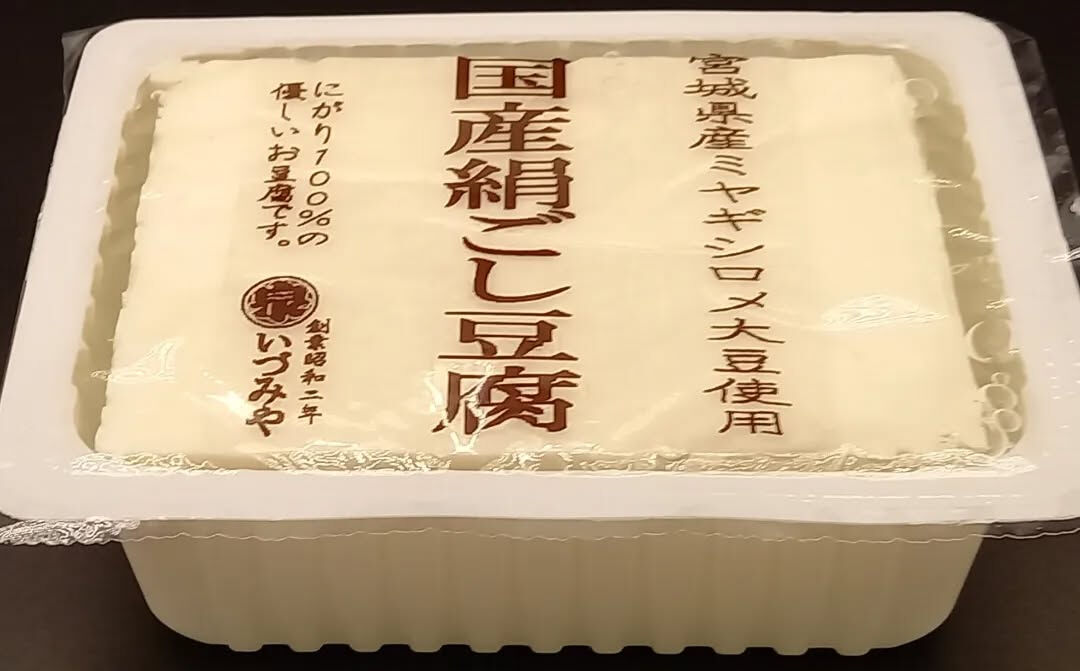 宮城県産ミヤギシロメ大豆使用
国産絹ごし豆腐
にがり100%の
優しいお豆腐です。
泉
創業昭和二年
いづみや